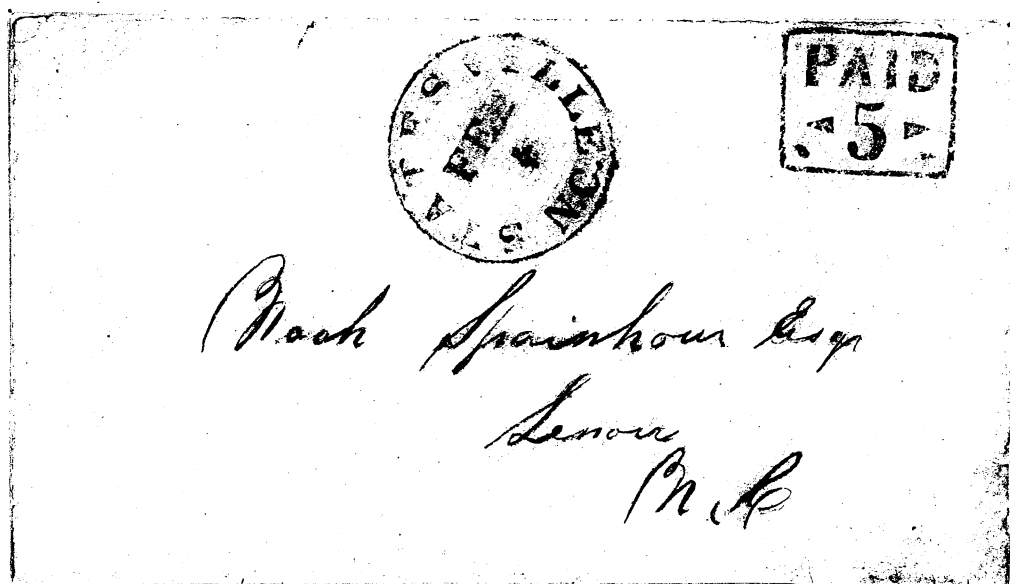 STATESVILLE. N.C.
FEB
4
PAID
5
Noah Spainhour Esqr
Lenoir
N.C